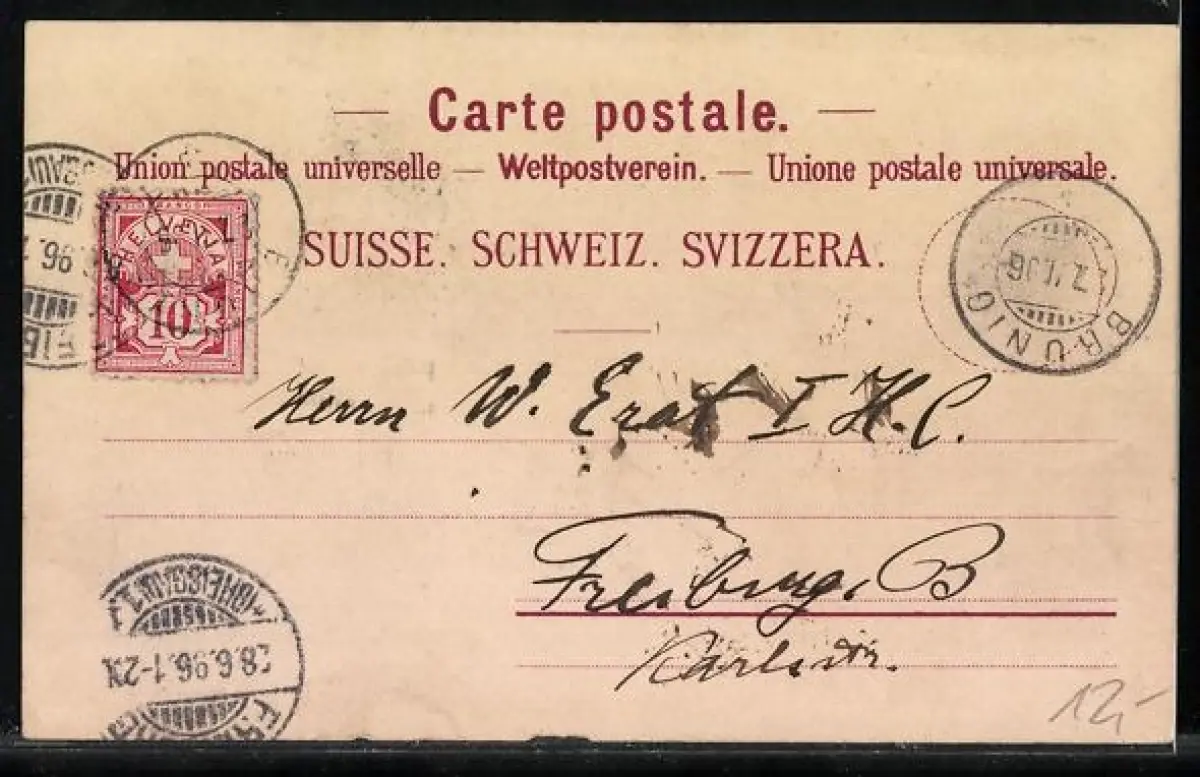 Carte postale.
Union postale universelle — Weltpostverein. — Unione postale universale.
SUISSE. SCHWEIZ. SVIZZERA.
FRANCO
HELVETIA
10
BRÜNIG
Herrn W. Erat I H.C.
Freiburg, B
28.6.96.1-2N
12,-